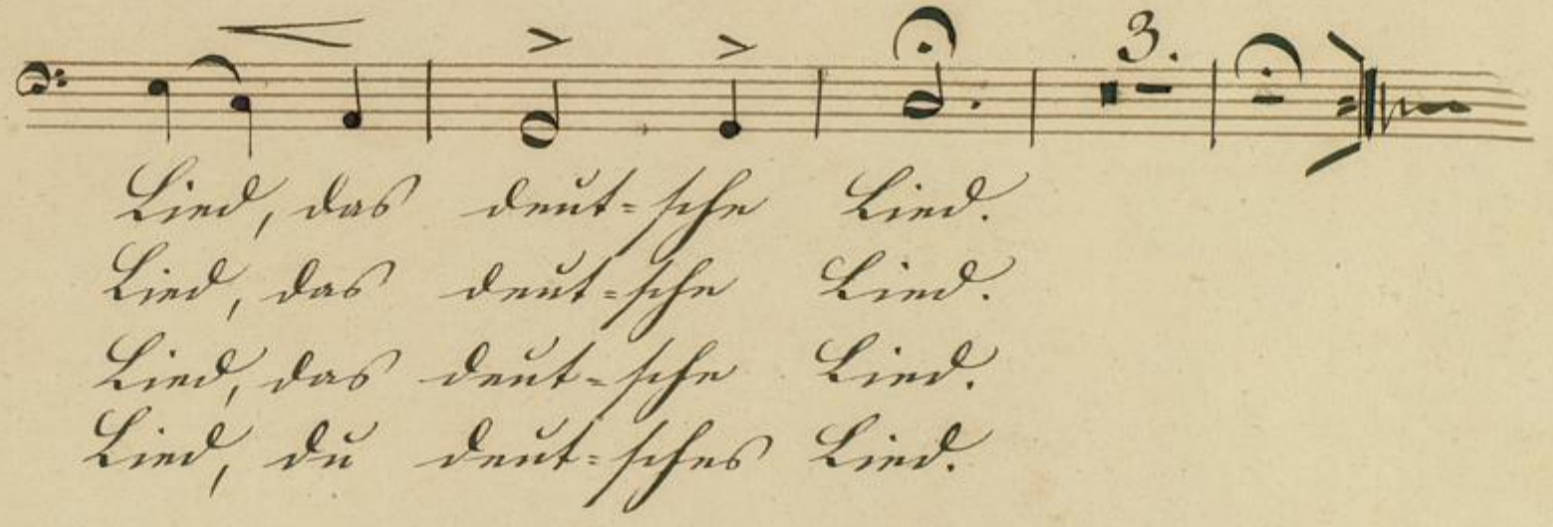 3.
Lied, das deut=sche Lied.
Lied, das deut=sche Lied.
Lied, das deut=sche Lied.
Lied, du deut=sches Lied.